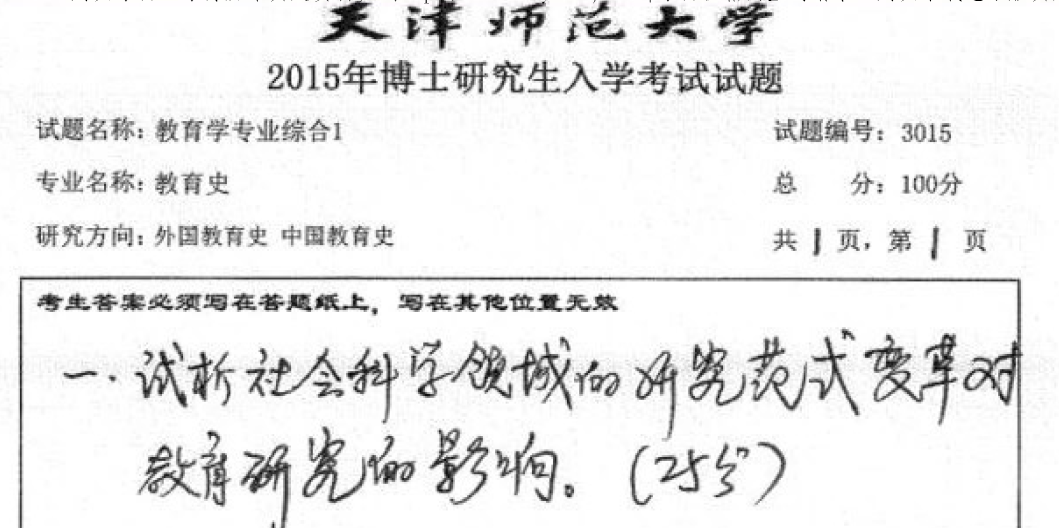 天津师范大学
2015年博士研究生入学考试试题
试题名称: 教育学专业综合1 试题编号: 3015
专业名称: 教育史 总 分: 100分
研究方向: 外国教育史 中国教育史 共 1 页, 第 1 页
考生答案必须写在答题纸上, 写在其他位置无效
一. 试析社会科学领域的研究范式变革对
教育研究的影响。(25分)